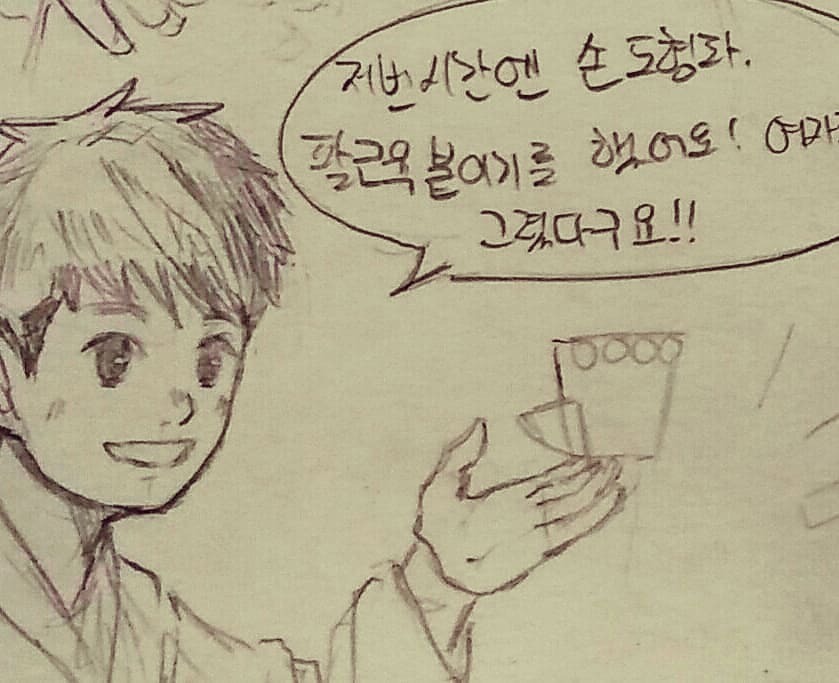 저번시간엔 손 도형화.
팔근육 붙이기를 했어요! 여자
그렸다구요!!